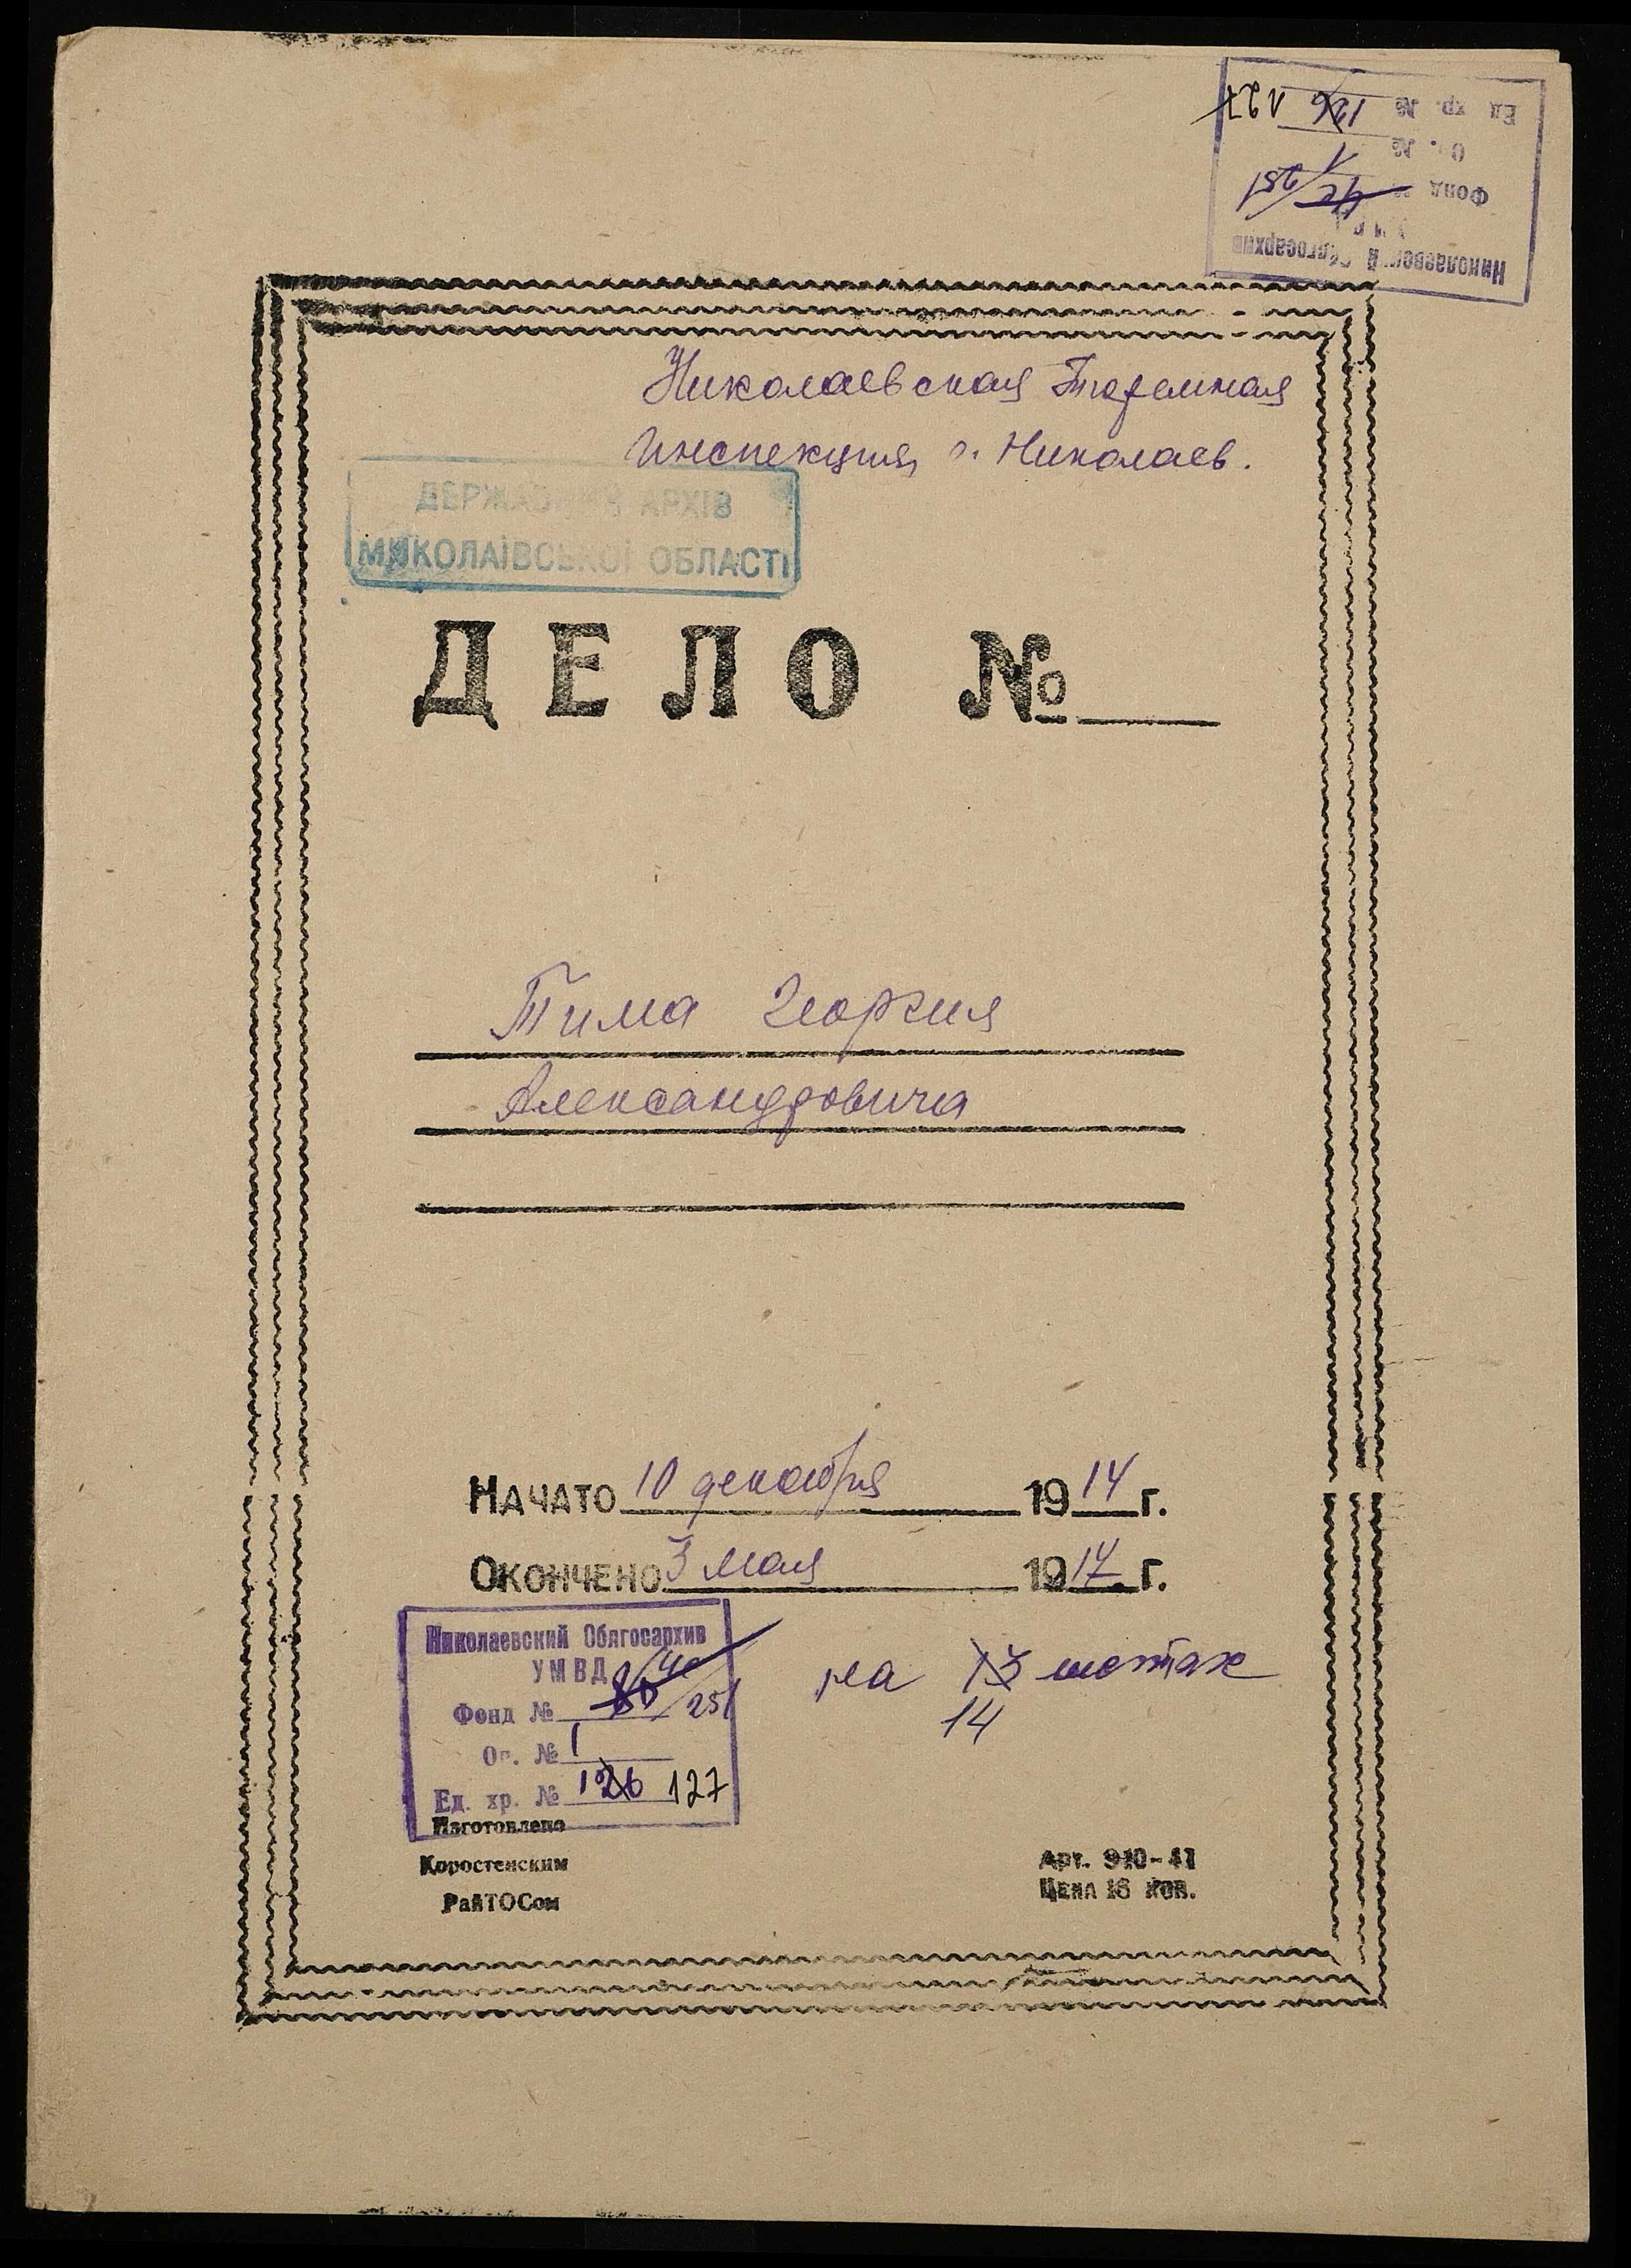 Ед. хр. № 126 127
Оп. № 1
Фонд № 4с/251
Николаевский Облгосархив
Николаевская Тюремная
Инспекция, г. Николаев.
ДЕРЖАВНИЙ АРХІВ
МИКОЛАЇВСЬКОЇ ОБЛАСТІ
ДЕЛО №
Тима Георгия
Александровича
НАЧАТО 10 декабря 1914 г.
ОКОНЧЕНО 3 мая 1917 г.
Николаевский Облгосархив
УМВД
Фонд № 251
Оп. № 1
Ед. хр. № 126 127
на 13 листах
14
Изготовлено
Коростенским
РайТОСом
Арт. 910-41
ЦЕНА 16 КОП.